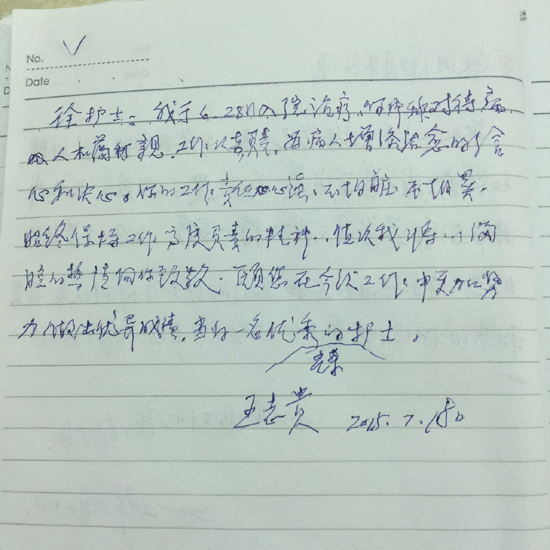 No. √
Date
徐护士：我于6.28日入院治疗，你那种对待病
人和蔼可亲，工作认真，为病人增添治愈的信
心和决心，你的工作责任心强，不怕脏不怕累，
始终保持工作高度负责的精神，值次我将以满
腔的热情向你致敬，愿您在今后工作中更加努
力做出优异成绩，当好一名优秀的护士。
光荣
王志贵 2015.7.18日